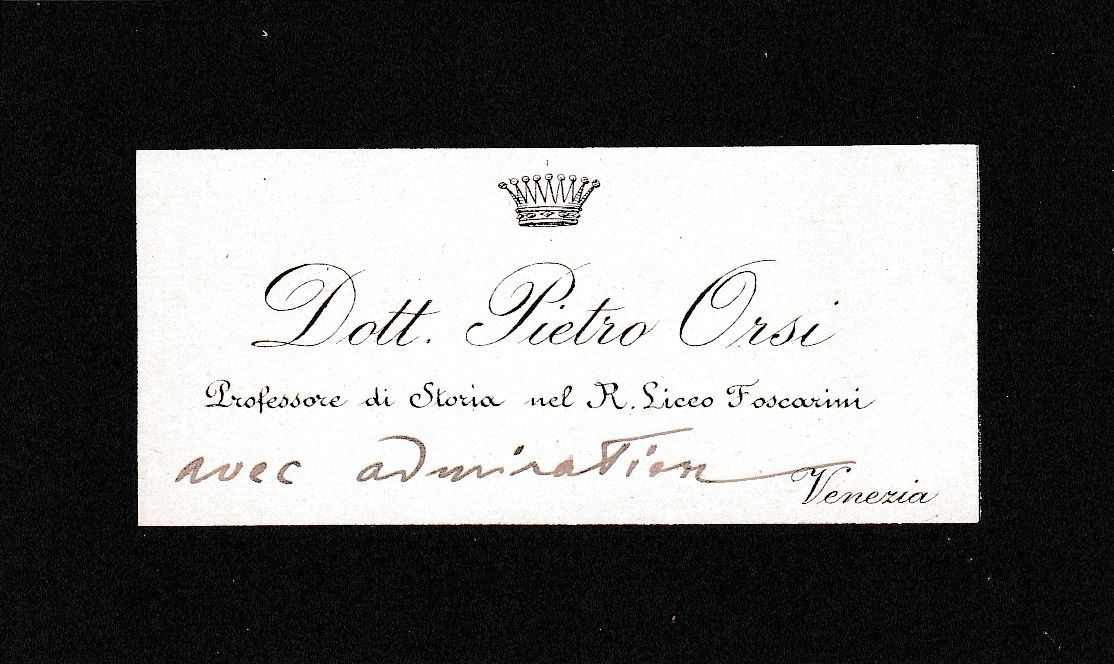 Dott. Pietro Orsi
Professore di Storia nel R. Liceo Foscarini
avec admiration
Venezia